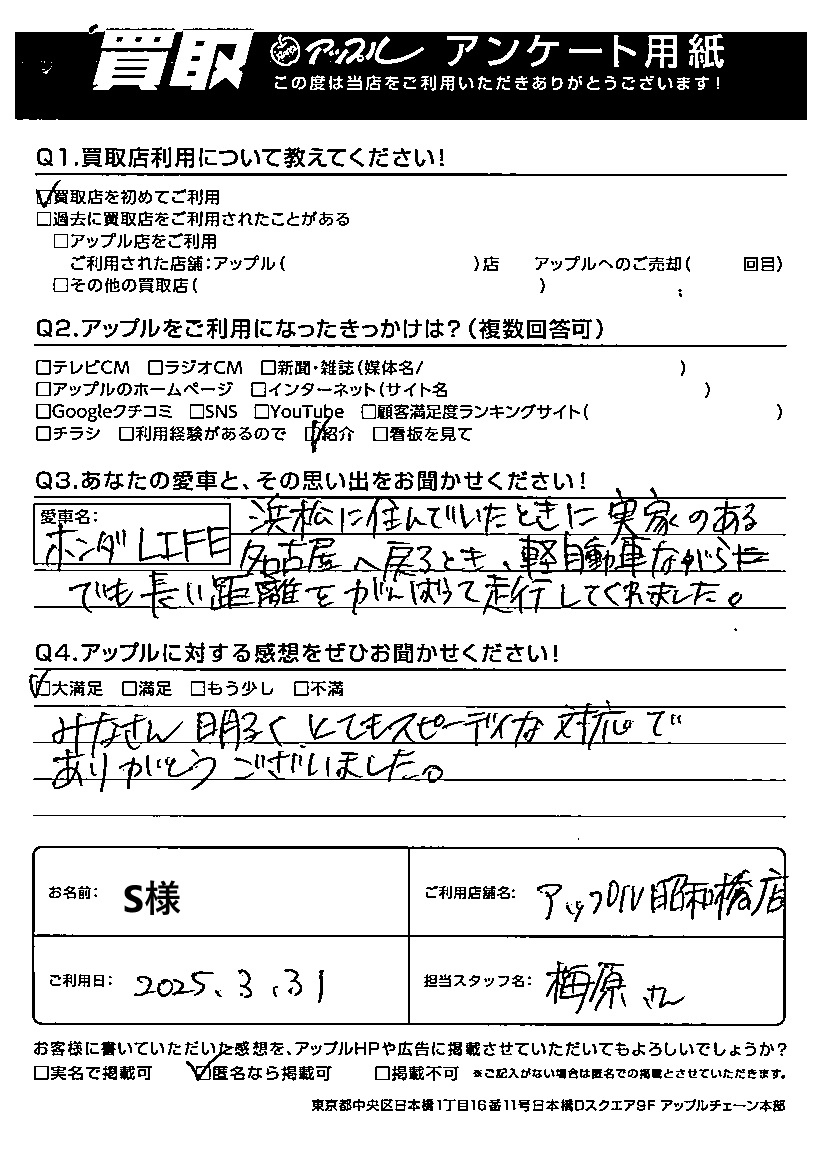 買取 アップル アンケート用紙
この度は当店をご利用いただきありがとうございます!
Q1.買取店利用について教えてください!
☑買取店を初めてご利用
□過去に買取店をご利用されたことがある
□アップル店をご利用
ご利用された店舗:アップル( )店 アップルへのご売却( 回目)
□その他の買取店( )
Q2.アップルをご利用になったきっかけは?(複数回答可)
□テレビCM □ラジオCM □新聞・雑誌(媒体名/ )
□アップルのホームページ □インターネット(サイト名 )
□Googleクチコミ □SNS □YouTube □顧客満足度ランキングサイト( )
□チラシ □利用経験があるので ☑紹介 □看板を見て
Q3.あなたの愛車と、その思い出をお聞かせください!
愛車名:
ホンダLIFE
浜松に住んでいたときに実家のある
名古屋へ戻るとき、軽自動車ながら
でも長い距離をがんばって走行してくれました。
Q4.アップルに対する感想をぜひお聞かせください!
☑大満足 □満足 □もう少し □不満
みなさん明るくとてもスピーディな対応で
ありがとうございました。
お名前: S様 ご利用店舗名: アップル昭和橋店
ご利用日: 2025.3.31 担当スタッフ名: 梅原さん
お客様に書いていただいた感想を、アップルHPや広告に掲載させていただいてもよろしいでしょうか?
□実名で掲載可 ☑匿名なら掲載可 □掲載不可 ※ご記入がない場合は匿名での掲載とさせていただきます。
東京都中央区日本橋1丁目16番11号日本橋Dスクエア9F アップルチェーン本部